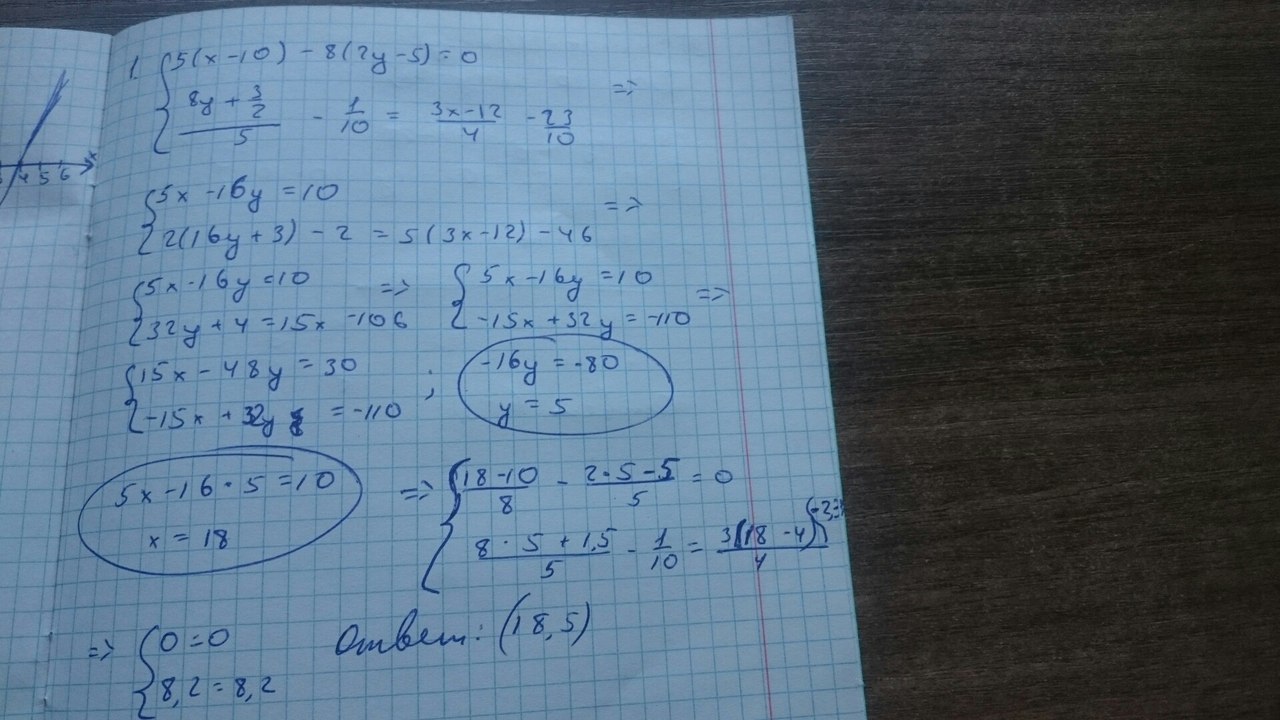 1. { 5(x-10) - 8(2y-5) = 0
(8y + 3/2)/5 - 1/10 = (3x-12)/4 - 23/10 =>
{ 5x - 16y = 10
2(16y+3) - 2 = 5(3x-12) - 46 =>
{ 5x - 16y = 10
32y + 4 = 15x - 106 =>
{ 5x - 16y = 10
-15x + 32y = -110 =>
{ 15x - 48y = 30
-15x + 32y = -110 ;
-16y = -80
y = 5
5x - 16 · 5 = 10
x = 18
=> { (18-10)/8 - (2·5-5)/5 = 0
(8 · 5 + 1,5)/5 - 1/10 = 3(18-4)/4
=> { 0 = 0
8,2 = 8,2
Ответ: (18,5)
4 5 6 x